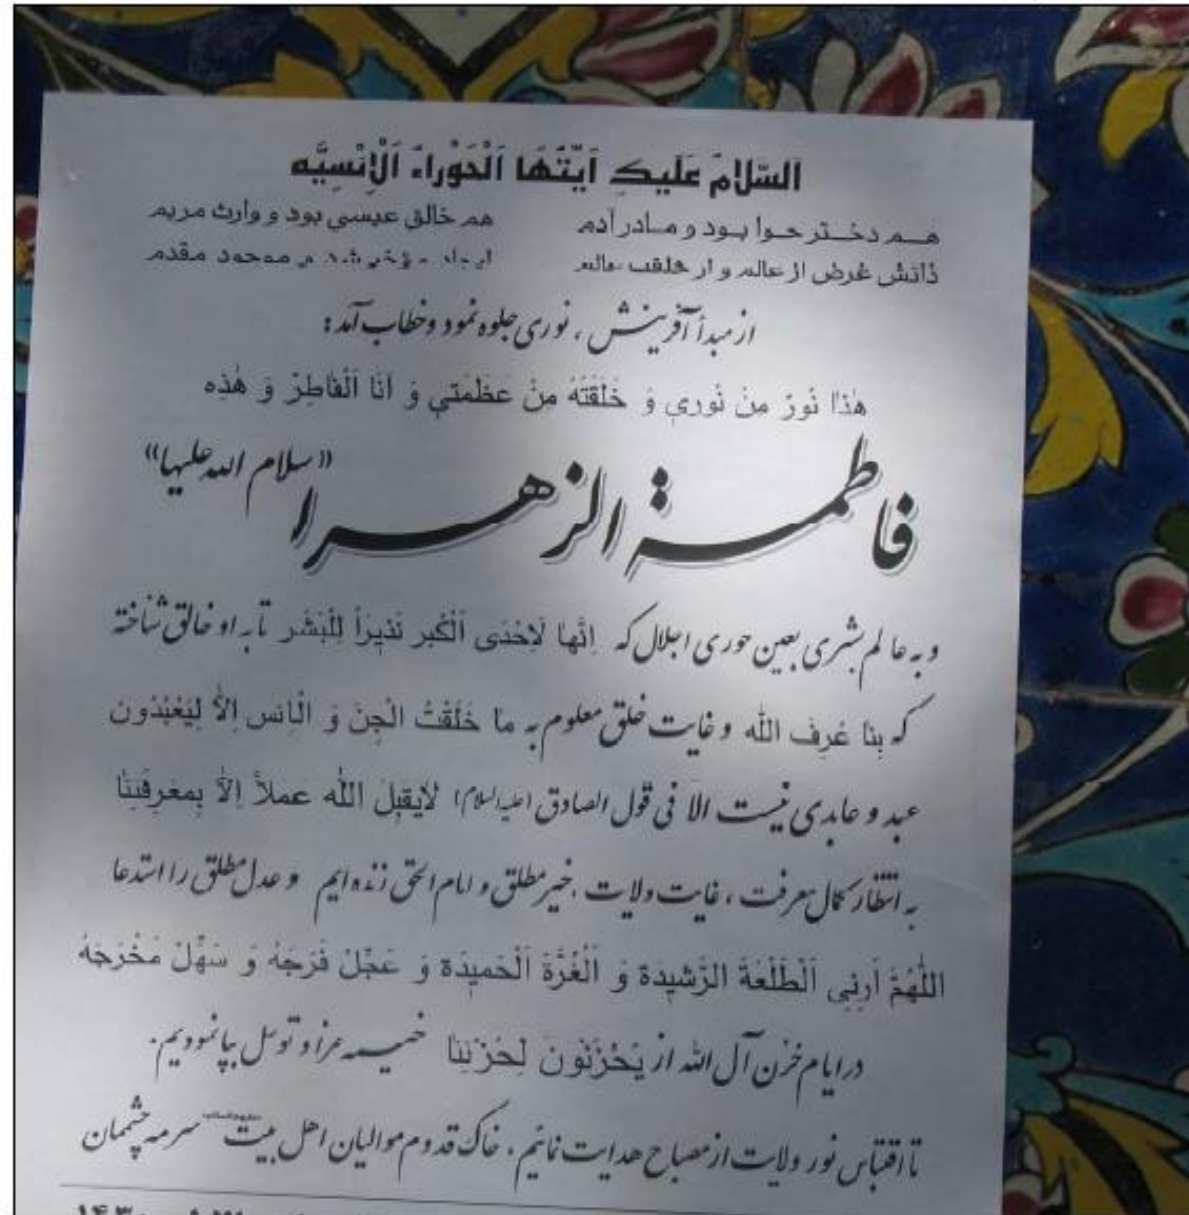 اَلسَّلامُ عَلَيكِ اَيَّتُهَا اَلْحَوْراءُ اَلْاِنْسِيَّه
هـم دخـتر حـوا بـود و مـادر آدم    هم خالق عیسی بود و وارث مریم
ذاتش غرض از عالم و از خلقت عالم    ایجاد مؤخر شد و موجود مقدم
از مبدأ آفرینش ، نوری جلوه نمود و خطاب آمد :
هٰذا نُورٌ مِنْ نُوري وَ خَلَقْتُهُ مِنْ عَظَمَتي وَ اَنَا اَلْفاطِرُ وَ هٰذِه
فاطمة الزهرا «سلام الله علیها»
و به عالم بشری بعین حوری اجلال که اِنَّها لَاِحْدَى اَلْكُبَر نَذيرَاً لِلْبَشَر تا به او خالق شناخته
که بِنا عُرِفَ الله و غایت خلق معلوم به ما خَلَقْتُ الْجِنَ وَ الْاِنس اِلاّٰ لِيَعْبُدُون
عبد و عابدی نیست الّا فی قول الصادق (علیه السلام) لايَقبِلَ اللّٰه عَمَلاً اِلاّٰ بِمَعْرِفَتِنَا
به انتظار کمال معرفت ، غایت ولایت ، خیر مطلق و امام الحق زنده ایم و عدل مطلق را استدعا
اللّٰهُمَّ اَرِنِي اَلْطَلْعَةَ الرَّشيدَة وَ اَلْغُرَّةَ اَلْحَميدَة وَ عَجِّلْ فَرَجَهُ وَ سَهِّلْ مَخْرَجَهُ
در ایام حُزن آل الله از يَحْزَنُونَ لِحُزْنِنَا خیمه عزا و توسل بپا نمودیم .
تا اقتباس نور ولایت از مصباح هدایت نمائیم ، خاک قدوم موالیان اهل بیت سرمه چشمان